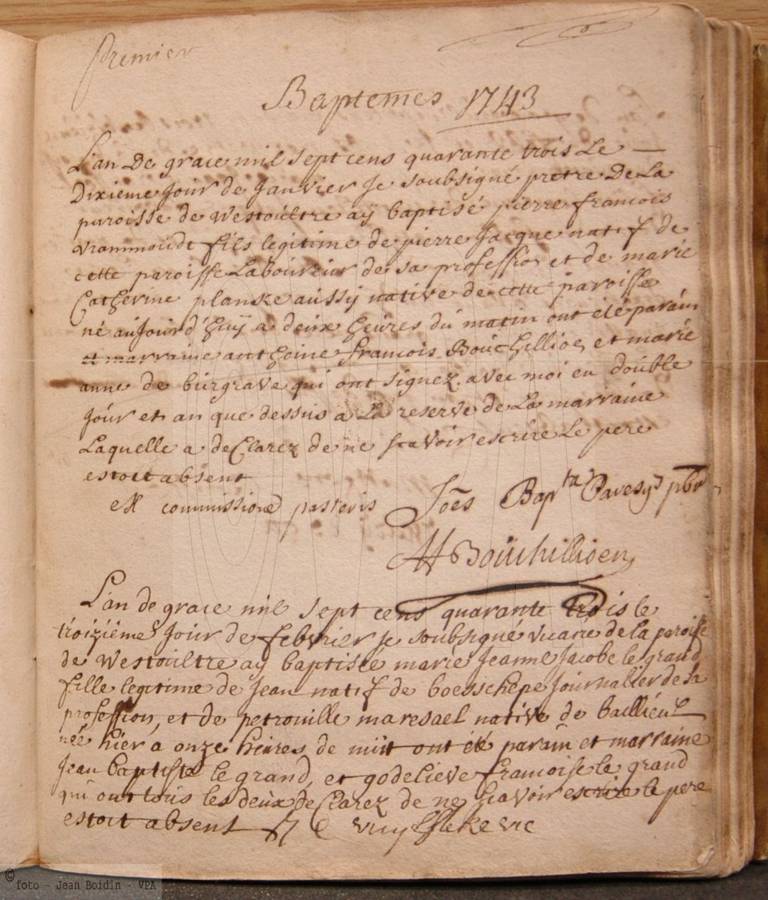 Premier
Baptemes 1743
L'an De grace mil sept cens quarante trois Le
Dixieme jour de Janvier Je soubsigné prétre De La
paroisse de Westoultre aÿ baptisé pierre francois
vrammoudt fils legitime de pierre Jacque natif de
cette paroisse Laboureur de sa profession et de marie
Catherine planke aussÿ native de cette paroisse
né aujourd'huÿ a deux heures du matin ont été parain
et marraine anthoine francois Bouchillioen et marie
anne de burgrave qui ont signez avec moi en double
Jour et an que dessus a La reserve de La marraine
Laquelle a deClarez de ne scavoir escrire Le pere
estoit absent
ex commissione pastoris Joēs Bapta pbr
Bouchillioen
L'an de grace mil sept cens quarante trois le
troizième Jour de febvrier je soubsigné vicaire de la paroisse
de Westoultre aÿ baptisée marie Jeanne Jacobe le grand
fille legitime de Jean natif de boesschepe Journalier de sa
profession, et de petronille maresael native de baillieul
née hier a onze heures de nuit ont été parain et marraine
Jean baptiste le grand, et godelieve francoise le grand
qui ont tous les deux deClarez de ne scavoir escrire le pere
estoit absent
©foto - Jean Boidin - VPA